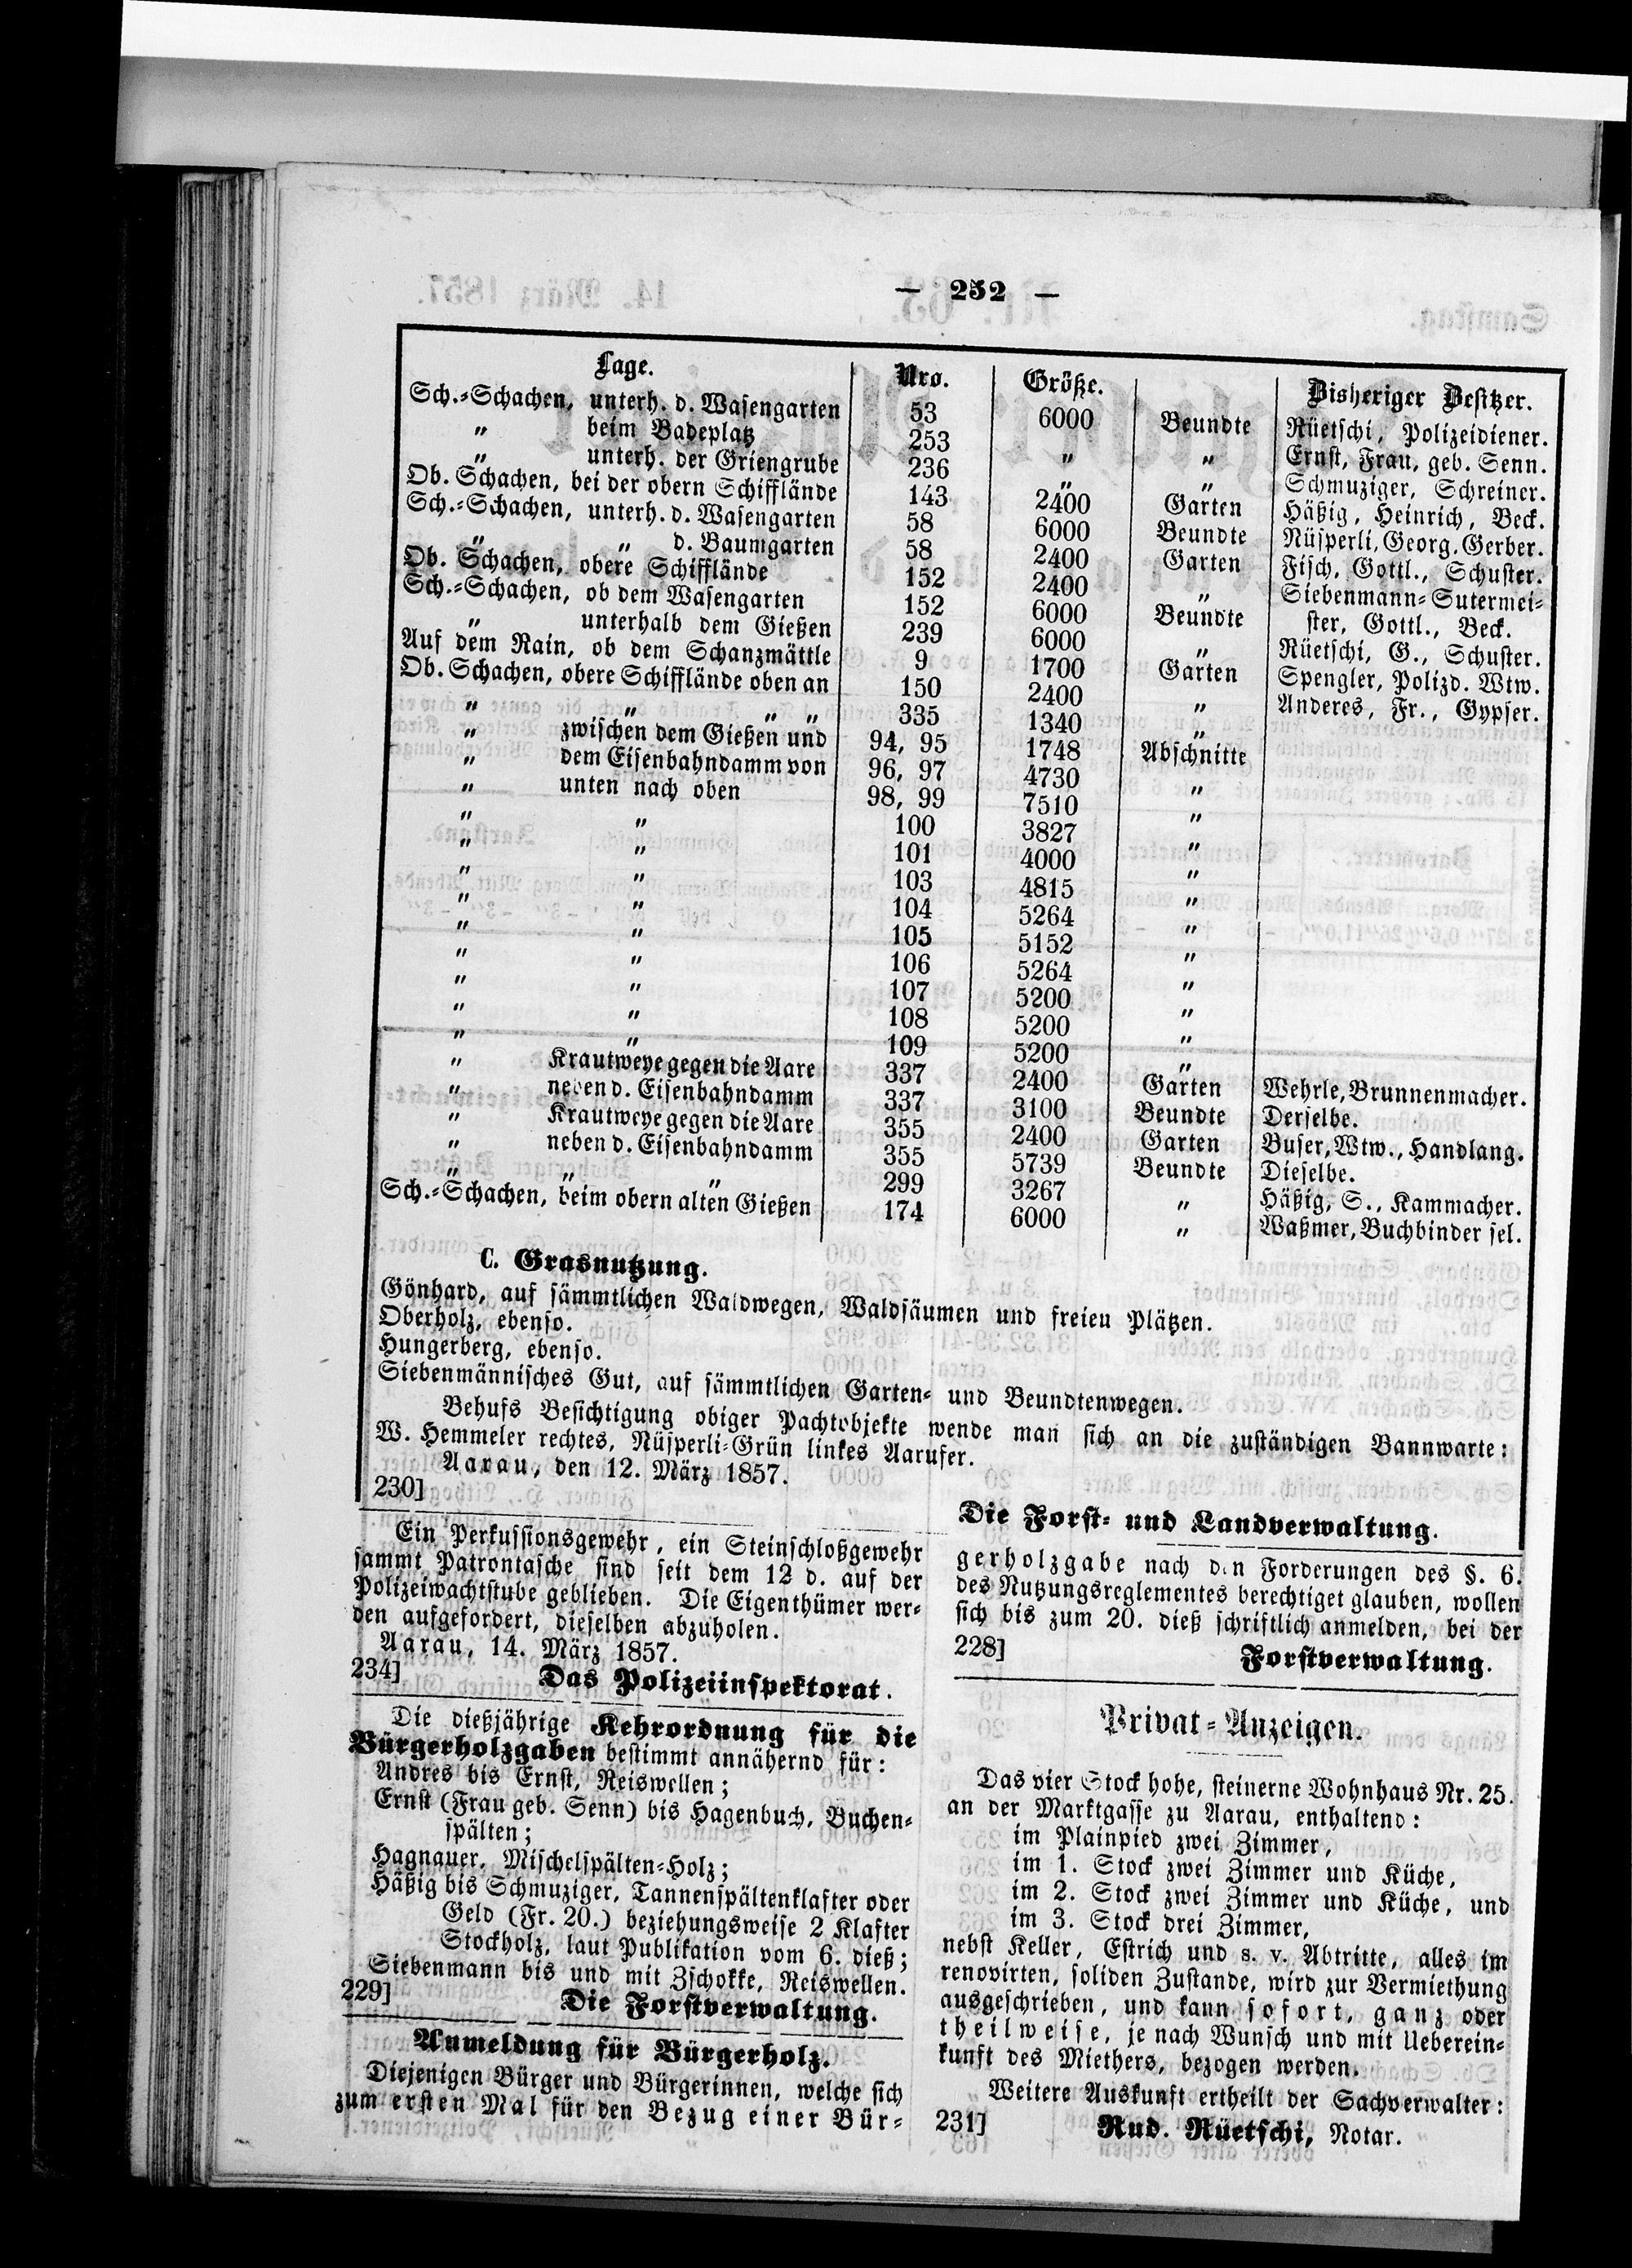 — 252 —
Lage. Nro. Größe. Bisheriger Besitzer.
Sch.-Schachen, unterh. d. Wasengarten 53 6000 Beundte Rüetschi, Polizeidiener.
„ beim Badeplatz 253 „ „ Ernst, Frau, geb. Senn.
„ unterh. der Griengrube 236 „ „ Schmuziger, Schreiner.
Ob. Schachen, bei der obern Schifflände 143 2400 Garten Häßig, Heinrich, Beck.
Sch.-Schachen, unterh. d. Wasengarten 58 6000 Beundte Nüsperli, Georg, Gerber.
„ „ d. Baumgarten 58 2400 Garten Fisch, Gottl., Schuster.
Ob. Schachen, obere Schifflände 152 2400 „ Siebenmann-Sutermei-
Sch.-Schachen, ob dem Wasengarten 152 6000 Beundte ster, Gottl., Beck.
„ unterhalb dem Gießen 239 6000 „ Rüetschi, G., Schuster.
Auf dem Rain, ob dem Schanzmättle 9 1700 Garten Spengler, Polizd. Wtw.
Ob. Schachen, obere Schifflände oben an 150 2400 „ Anderes, Fr., Gypser.
„ „ „ „ 335 1340 „
„ zwischen dem Gießen und 94, 95 1748 Abschnitte
„ dem Eisenbahndamm von 96, 97 4730 „
„ unten nach oben 98, 99 7510 „
„ „ 100 3827 „
„ „ 101 4000 „
„ „ 103 4815 „
„ „ 104 5264 „
„ „ 105 5152 „
„ „ 106 5264 „
„ „ 107 5200 „
„ „ 108 5200 „
„ „ 109 5200 „
„ Krautweye gegen die Aare 337 2400 Garten Wehrle, Brunnenmacher.
„ neben d. Eisenbahndamm 337 3100 Beundte Derselbe.
„ Krautweye gegen die Aare 355 2400 Garten Buser, Wtw., Handlang.
„ neben d. Eisenbahndamm 355 5739 Beundte Dieselbe.
„ „ „ 299 3267 „ Häßig, S., Kammacher.
Sch.-Schachen, beim obern alten Gießen 174 6000 „ Waßmer, Buchbinder sel.
C. Grasnutzung.
Gönhard, auf sämmtlichen Waldwegen, Waldsäumen und freien Plätzen.
Oberholz, ebenso.
Hungerberg, ebenso.
Siebenmännisches Gut, auf sämmtlichen Garten- und Beundtenwegen.
Behufs Besichtigung obiger Pachtobjekte wende man sich an die zuständigen Bannwarte:
W. Hemmeler rechtes, Nüsperli-Grün linkes Aarufer.
Aarau, den 12. März 1857.
230] Die Forst- und Landverwaltung.
Ein Perkussionsgewehr, ein Steinschloßgewehr
sammt Patrontasche sind seit dem 12 d. auf der
Polizeiwachtstube geblieben. Die Eigenthümer wer-
den aufgefordert, dieselben abzuholen.
Aarau, 14. März 1857.
234] Das Polizeiinspektorat.
Die dießjährige Kehrordnung für die
Bürgerholzgaben bestimmt annähernd für:
Andres bis Ernst, Reiswellen;
Ernst (Frau geb. Senn) bis Hagenbuch, Buchen-
spälten;
Hagnauer, Mischelspälten-Holz;
Häßig bis Schmuziger, Tannenspältenklafter oder
Geld (Fr. 20.) beziehungsweise 2 Klafter
Stockholz, laut Publikation vom 6. dieß;
Siebenmann bis und mit Zschokke, Reiswellen.
229] Die Forstverwaltung.
Anmeldung für Bürgerholz.
Diejenigen Bürger und Bürgerinnen, welche sich
zum ersten Mal für den Bezug einer Bür-
gerholzgabe nach den Forderungen des §. 6.
des Nutzungsreglementes berechtiget glauben, wollen
sich bis zum 20. dieß schriftlich anmelden, bei der
228] Forstverwaltung.
Privat-Anzeigen.
Das vier Stock hohe, steinerne Wohnhaus Nr. 25.
an der Marktgasse zu Aarau, enthaltend:
im Plainpied zwei Zimmer,
im 1. Stock zwei Zimmer und Küche,
im 2. Stock zwei Zimmer und Küche, und
im 3. Stock drei Zimmer,
nebst Keller, Estrich und s. v. Abtritte, alles im
renovirten, soliden Zustande, wird zur Vermiethung
ausgeschrieben, und kann sofort, ganz oder
theilweise, je nach Wunsch und mit Ueberein-
kunft des Miethers, bezogen werden.
Weitere Auskunft ertheilt der Sachverwalter:
231] Rud. Rüetschi, Notar.